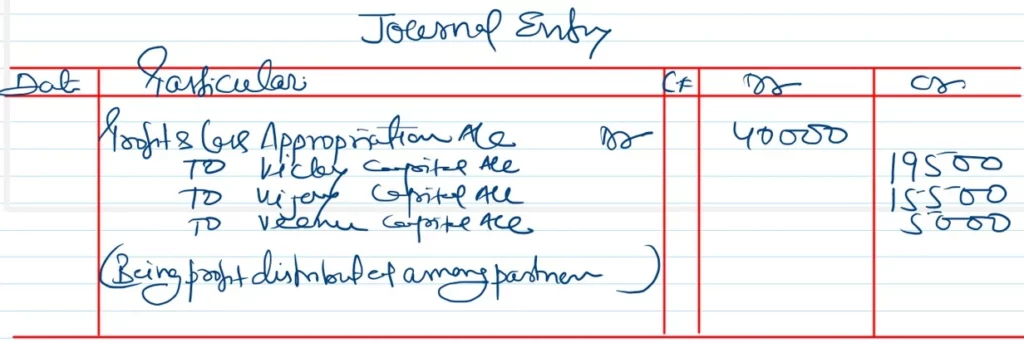 Journal Entry
Date Particular LF Dr Cr
Profit & Loss Appropriation A/c Dr 40000
TO Vicky Capital A/c 19500
TO Vijay Capital A/c 15500
TO Veenu Capital A/c 5000
(Being profit distributed among partners)